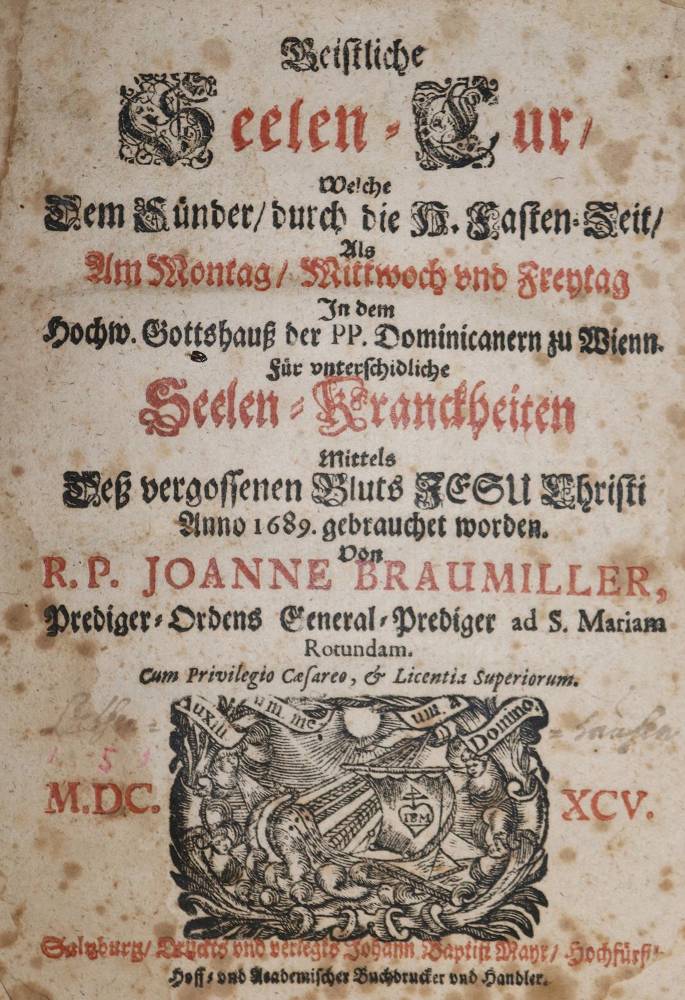 Geistliche
Seelen-Cur/
Welche
Dem Sünder/ durch die H. Fasten-Zeit/
Als
Am Montag/ Mittwoch vnd Freytag
In dem
Hochw. Gottshauß der PP. Dominicanern zu Wienn.
Für vnterschidliche
Seelen-Kranckheiten
Mittels
Deß vergossenen Bluts JESU Christi
Anno 1689. gebrauchet worden.
Von
R.P. JOANNE BRAUMILLER,
Prediger-Ordens General-Prediger ad S. Mariam
Rotundam.
Cum Privilegio Cæsareo, & Licentia Superiorum.
Auxili um. me, um. a Domino.
IBM
M.DC. XCV.
Saltzburg/ Druckts vnd verlegts Johann Baptist Mayr/ Hochfürstl.
Hoff- vnd Academischer Buchdrucker vnd Handler.